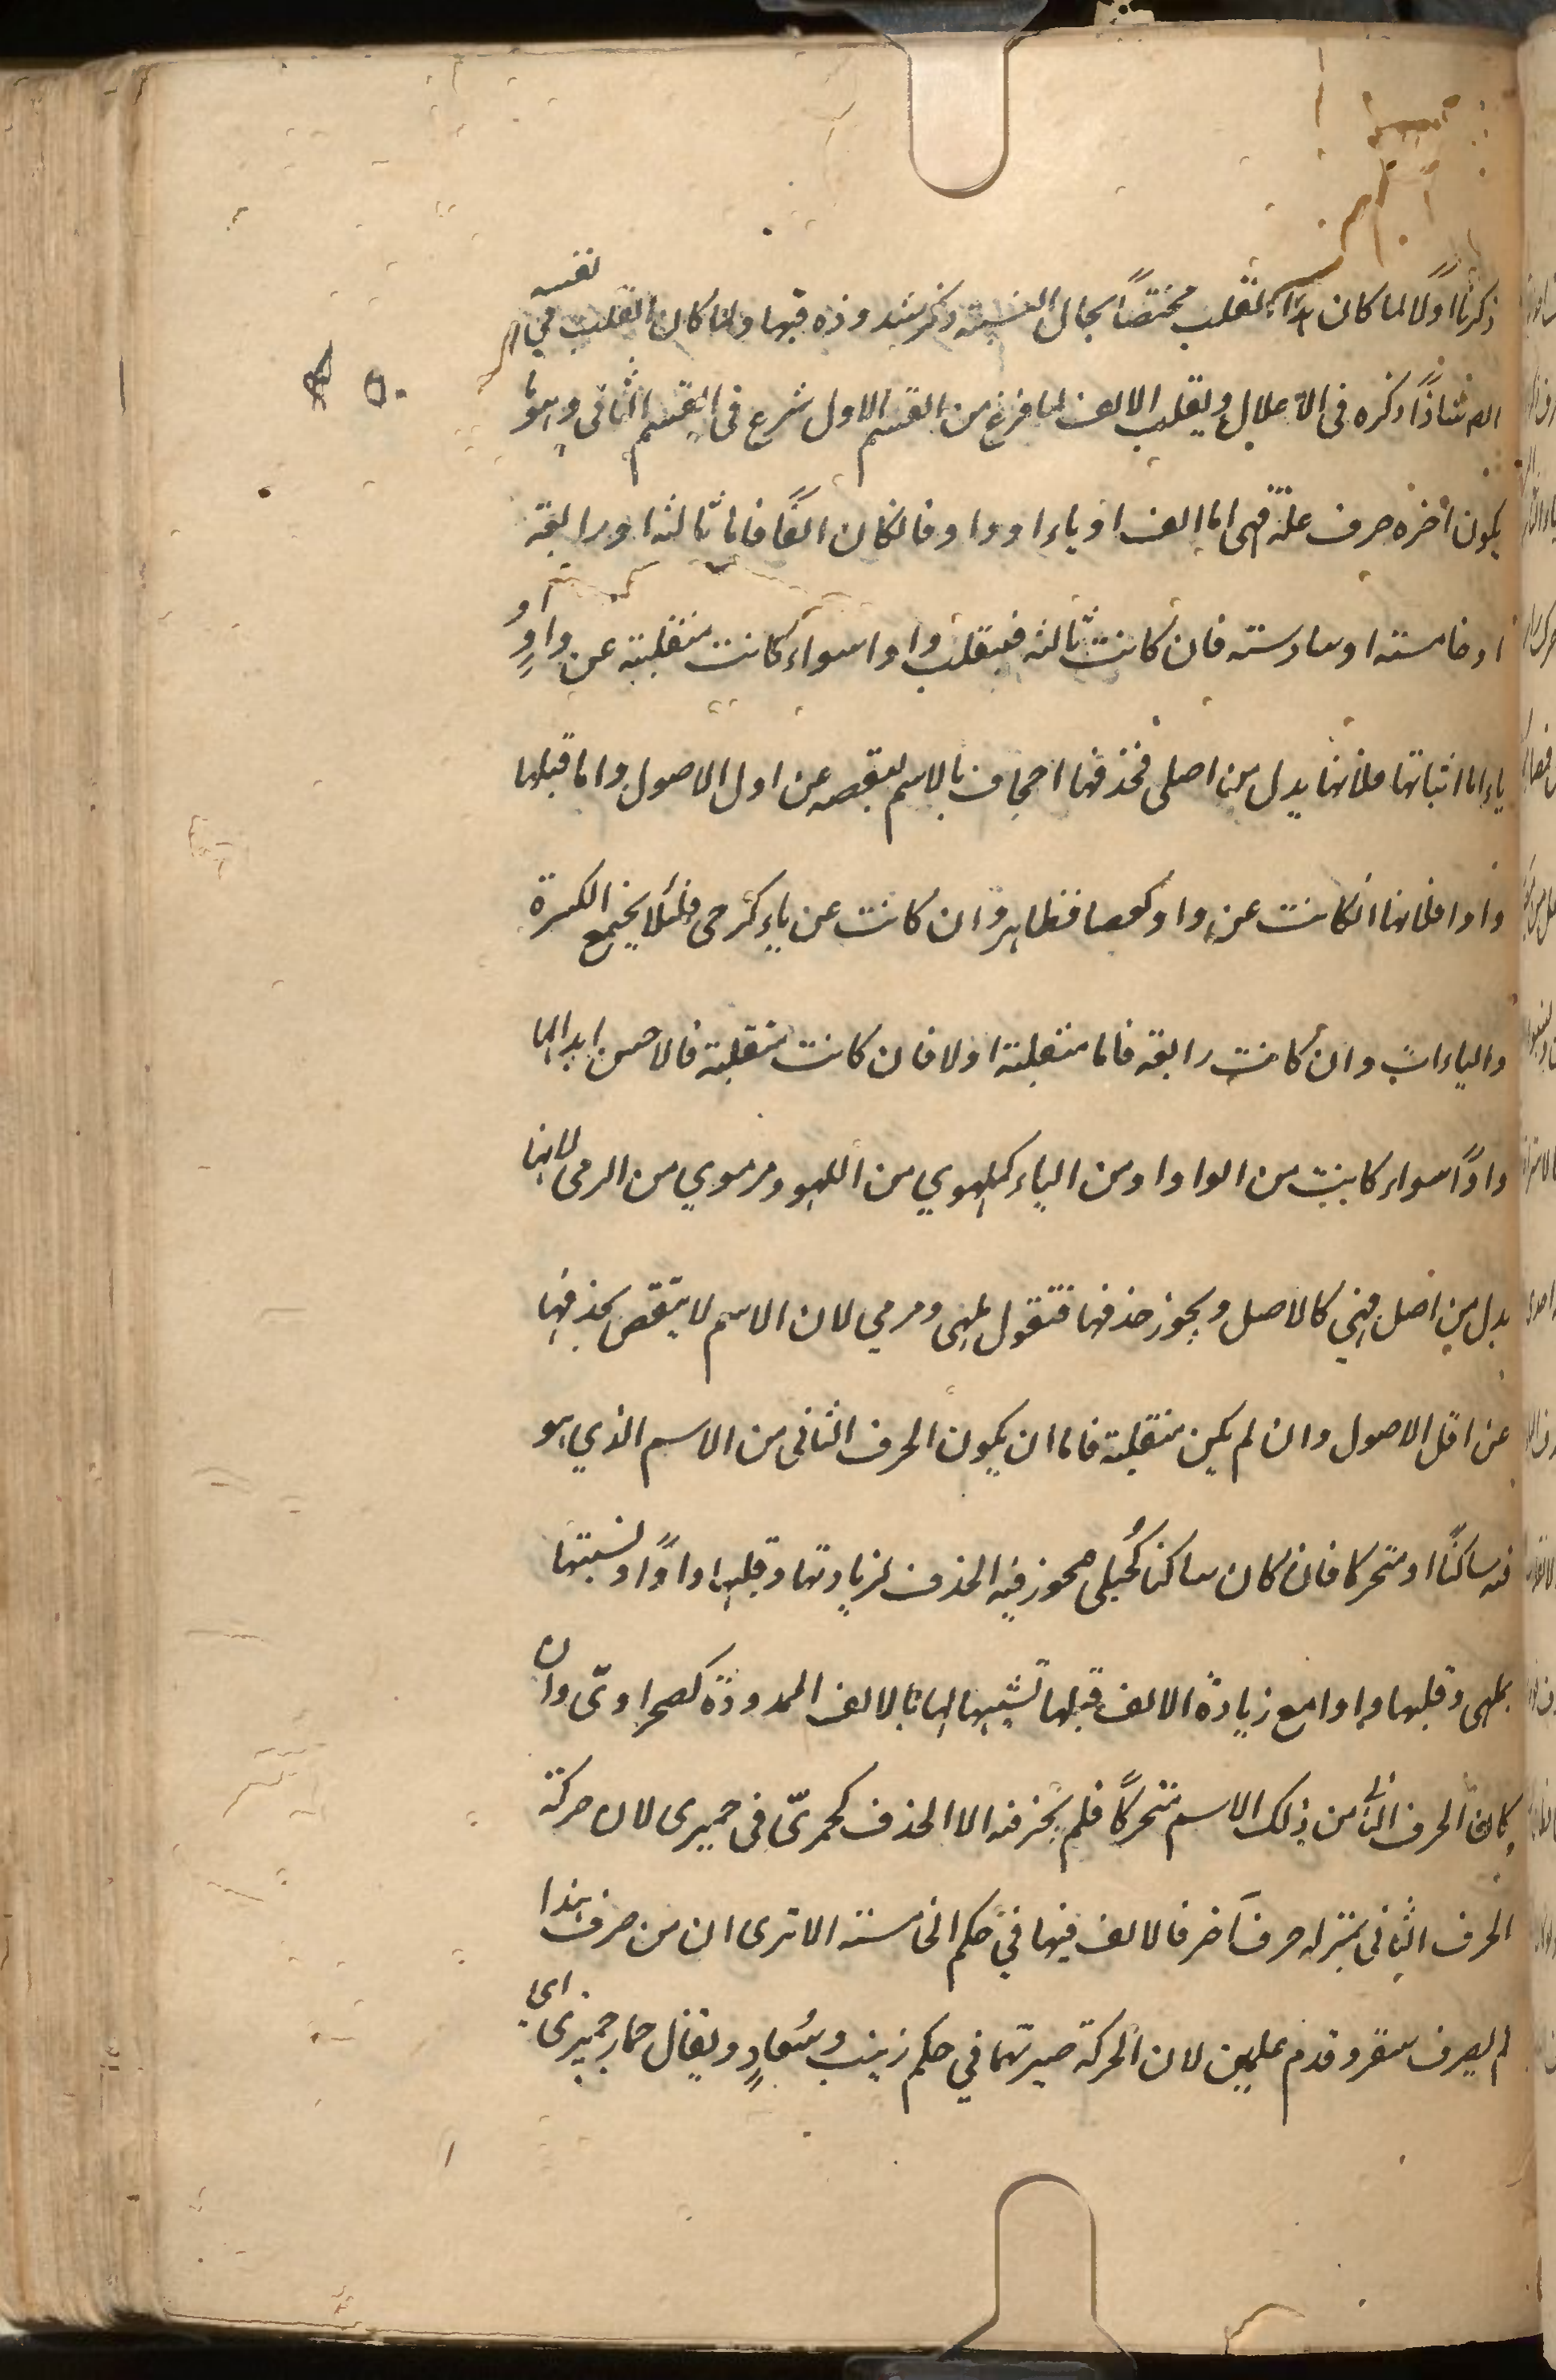 ذكرنا اولًا لما كان القلب مختصًا بحال النسبة ذكر شذوذه فيها ولما كان القلب في نفسه
شاذًا ذكره في الاعلال ويقلب الالف لما فرغ من القسم الاول شرع في القسم الثاني وهو ما
يكون اخره حرف علة فهي اما الف او ياء او واو فانكان الفًا فاما ثالثة او رابعة
او خامسة او سادسة فان كانت ثالثة فيقلب واوا سواء كانت منقلبة عن واو او
ياء اما اثباتها فلانها بدل من اصلي فحذفها اجحاف بالاسم لنقصه عن اول الاصول واما قبلها
واوا فلانها انكانت عن واو كعصا فظاهر وان كانت عن ياء كرحى فلئلا يجتمع الكسرة
والياءات وان كانت رابعة فاما منقلبة اولا فان كانت منقلبة فالاحسن ابدالها
واوًا سواء كانت من الواو او من الياء كملهوي من اللهو ومرموي من الرمي لانها
بدل من اصل فهي كالاصل ويجوز حذفها فتقول ملهي ومرمي لان الاسم لا ينقص بحذفها
عن اقل الاصول وان لم يكن منقلبة فاما ان يكون الحرف الثاني من الاسم الذي هو
فيه ساكنًا او متحركا فان كان ساكنا كحُبلى فيجوز فيه الحذف لزيادتها وقلبها واوًا ونسبتها
بملهى وقلبها واوا مع زيادة الالف قبلها تشبيها لها بالالف الممدودة كصحراويّ وان
كان الحرف الثاني من ذلك الاسم متحركًا فلم يجز فيه الا الحذف كجمزيّ في جمزى لان حركة
الحرف الثاني بمنزلة حرف آخر فالالف فيها في حكم الخامسة الا ترى ان من صرف هندا
لم يصرف سقر وقدم علمين لان الحركة صيرتهما في حكم زينب وسُعاد ويقال حمار جمزى اي